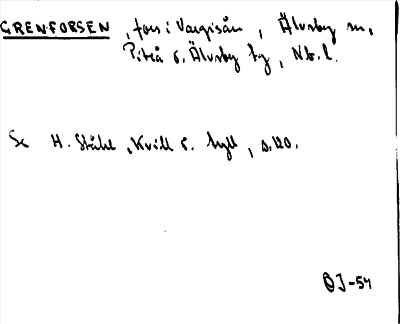 GRENFORSEN, fors i Vargisån, Älvsby sn,
Piteå o. Älvsby tg, Nb. l.
Se H. Ståhl, Kvill o. tyll, s. 120.
OJ-54